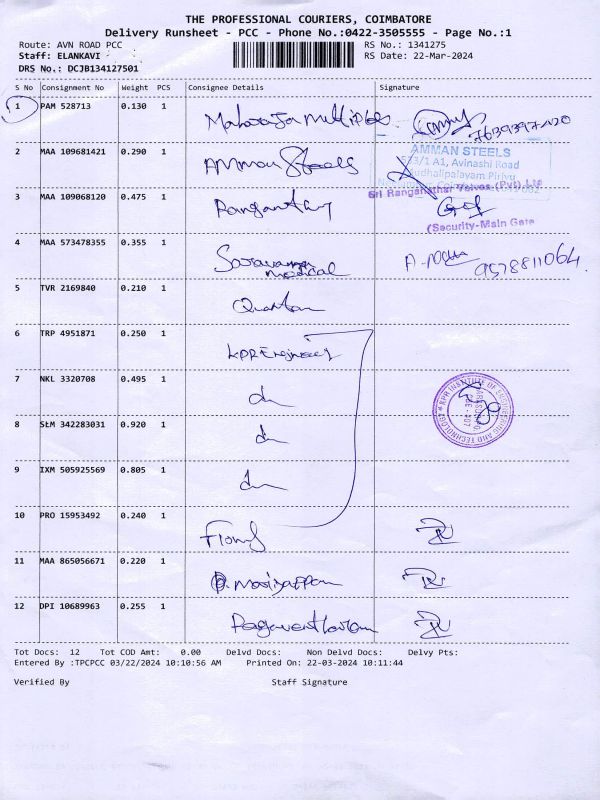 THE PROFESSIONAL COURIERS, COIMBATORE
Delivery Runsheet - PCC - Phone No.:0422-3505555 - Page No.:1
Route: AVN ROAD PCC
RS No.: 1341275
Staff: ELANKAVI
RS Date: 22-Mar-2024
DRS No.: DCJB134127501
S No Consignment No Weight PCS Consignee Details Signature
1 PAM 528713 0.130 1
2 MAA 109681421 0.290 1 Amman Steels
AMMAN STEELS
Avinashi Road
3 MAA 109068120 0.475 1
Sri Ranganathar Valves (Pvt) Ltd
(Security-Main Gate
4 MAA 573478355 0.355 1 Saravanna medical 9578811064
5 TVR 2169840 0.210 1
6 TRP 4951871 0.250 1 KPR Engineer
7 NKL 3320708 0.495 1 do
KPR INSTITUTE OF ENGINEERING AND TECHNOLOGY
8 SLM 342283031 0.920 1 do
9 IXM 505925569 0.805 1 do
10 PRO 15953492 0.240 1
11 MAA 865056671 0.220 1
12 DPI 10689963 0.255 1
Tot Docs: 12 Tot COD Amt: 0.00 Delvd Docs: Non Delvd Docs: Delvy Pts:
Entered By :TPCPCC 03/22/2024 10:10:56 AM Printed On: 22-03-2024 10:11:44
Verified By Staff Signature